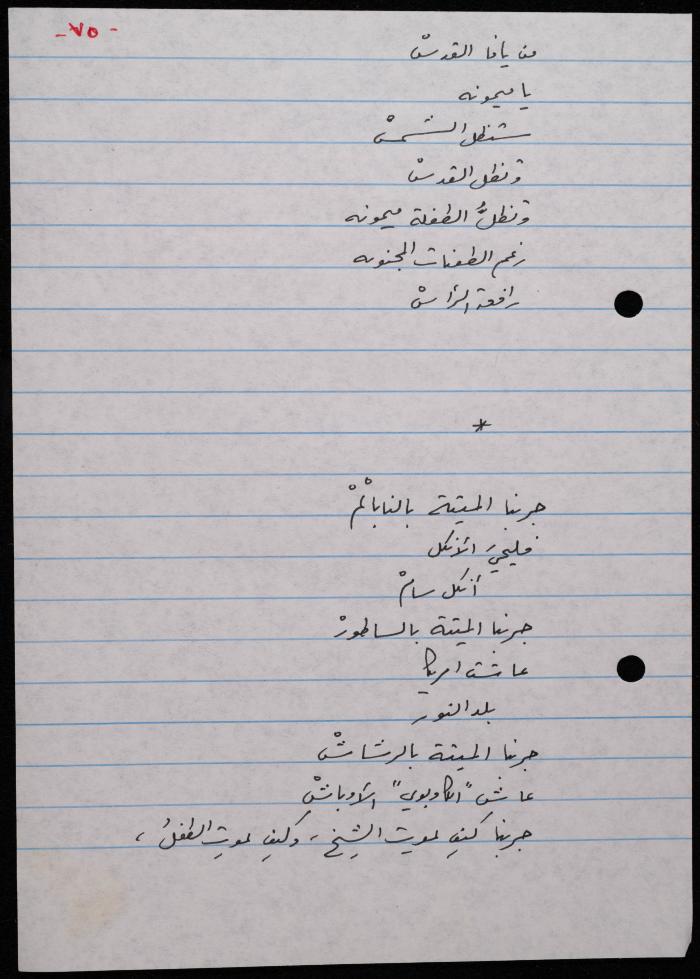 - ٧٥ -
من يافا القدسْ
يا ميمونه
ستظل الشمسْ
وتظل القدسْ
وتظلُّ الطفلة ميمونه
رغم الطعنات المجنونه
رافعة الرأسْ
*
جربنا الميتة بالنابالْمْ
فليحيَ الأنكل
أنكل سامْ
جربنا الميتة بالساطورْ
عاشت امريكا
بلد النور
جربنا الميتة بالرشاشْ
عاش "الكاوبوي" الأوباشْ
جربنا كيف يموت الشيخ ، وكيف يموتِ الطفلُ ،